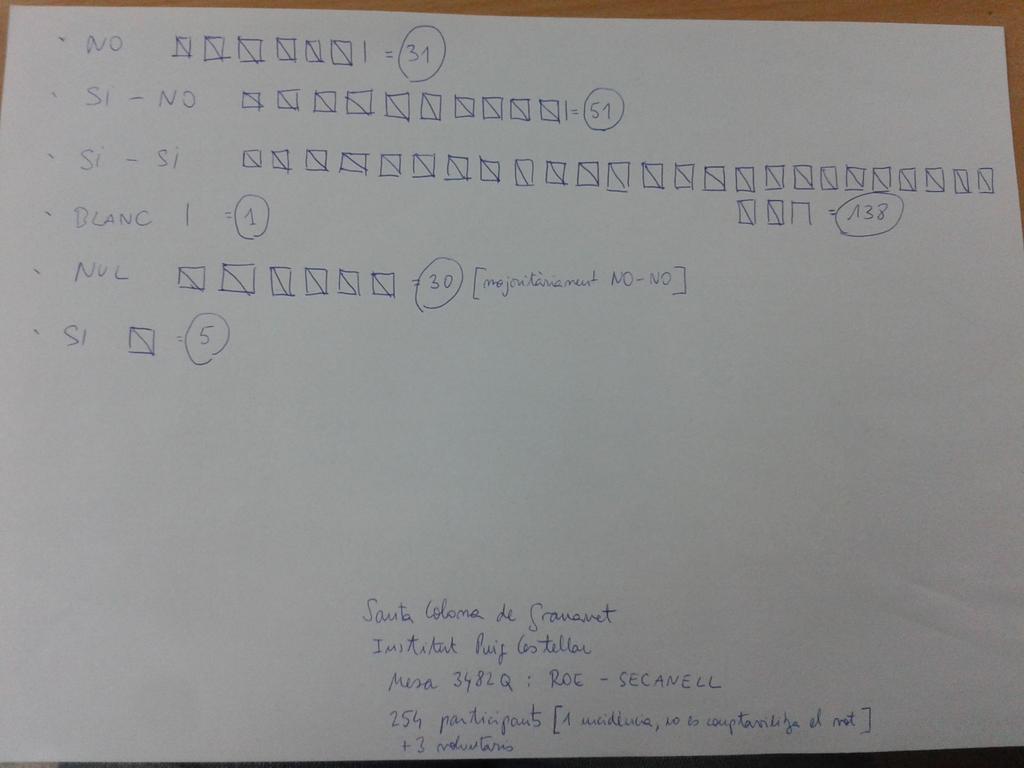 · NO | = 31
· SI - NO | = 51
· Si - Si
= 138
· BLANC | = 1
· NUL = 30 [majoritàriament NO-NO]
· SI = 5
Santa Coloma de Gramanet
Institut Puig Castellar
Mesa 3482Q : ROE - SECANELL
254 participants [1 incidència, no es comptavilitza el vot]
+ 3 voluntaris